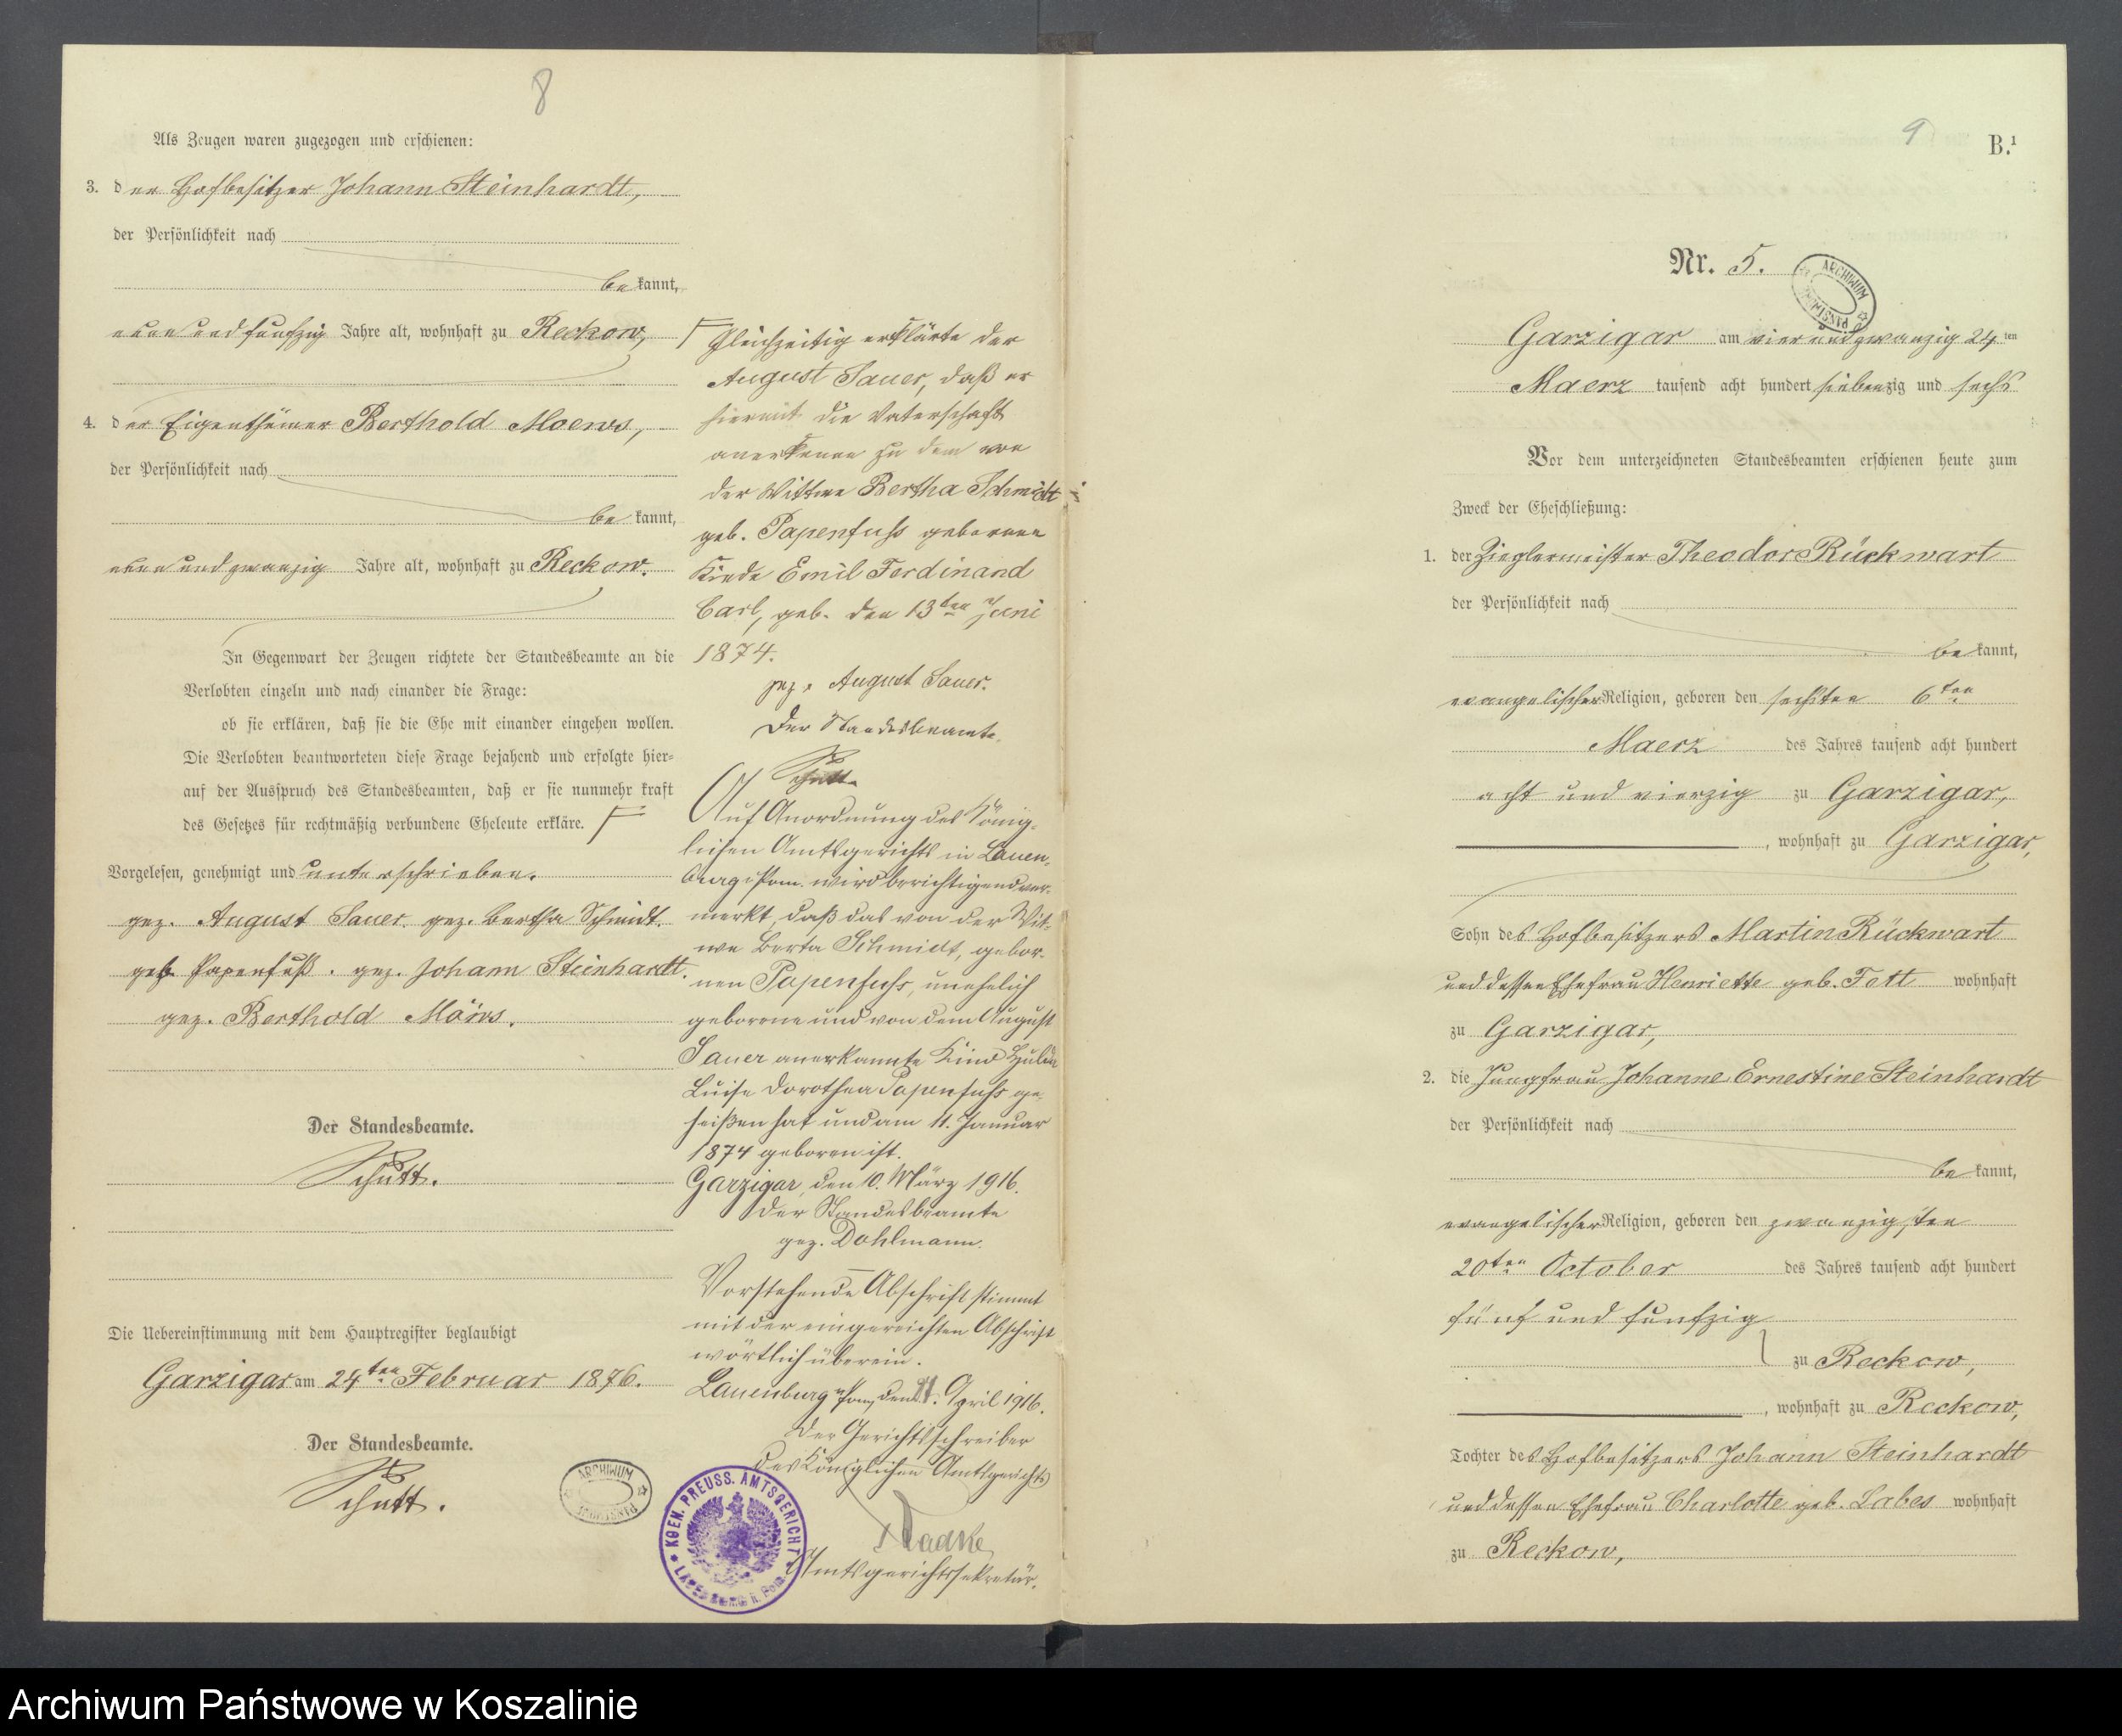 8
Als Zeugen waren zugezogen und erschienen:
3. der Hofbesitzer Johann Steinhardt,
der Persönlichkeit nach
bekannt,
neun und funfzig Jahre alt, wohnhaft zu Reckow,
4. der Eigenthümer Berthold Moews,
der Persönlichkeit nach
bekannt,
neun und zwanzig Jahre alt, wohnhaft zu Reckow.
In Gegenwart der Zeugen richtete der Standesbeamte an die
Verlobten einzeln und nach einander die Frage:
ob sie erklären, daß sie die Ehe mit einander eingehen wollen.
Die Verlobten beantworteten diese Frage bejahend und erfolgte hier-
auf der Ausspruch des Standesbeamten, daß er sie nunmehr kraft
des Gesetzes für rechtmäßig verbundene Eheleute erkläre.
Vorgelesen, genehmigt und unterschrieben.
gez. August Sauer. gez. Bertha Schmidt.
geb. Papenfuß. gez. Johann Steinhardt.
gez. Berthold Mövs.
Der Standesbeamte.
Schütt.
Die Uebereinstimmung mit dem Hauptregister beglaubigt
Garzigar am 24ten Februar 1876.
Der Standesbeamte.
Schütt.
ARCHIWUM
Gleichzeitig erklärte der
August Sauer, daß er
hiermit die Vaterschaft
anerkenne zu dem von
der Wittwe Bertha Schmidt
geb. Papenfuss geborenen
Kinde Emil Ferdinand
Carl, geb. den 13ten Juni
1874.
gez. August Sauer.
Der Standesbeamte.
Schütt.
Auf Anordnung des König-
lichen Amtsgerichts in Lauen-
burg i Pom. wird berichtigend ver-
merkt, daß das von der Wit-
we Berta Schmidt, gebor-
nen Papenfuss, unehelich
geborene und von dem August
Sauer anerkannte Kind Hulda
Luise Dorothea Papenfuss ge-
heißen hat und am 11. Januar
1874 geboren ist.
Garzigar, den 10. März 1916.
Der Standesbeamte
gez. Dahlmann.
Vorstehende Abschrift stimmt
mit der eingereichten Abschrift
wörtlich überein.
Lauenburg i/Pom, den 11. April 1916.
Der Gerichtsschreiber
des Königlichen Amtsgerichts
Radtke
Amtsgerichtssekretär.
KOEN. PREUSS. AMTSGERICHT
9
B.1
Nr. 5.
ARCHIWUM
Garzigar am vier und zwanzig 24ten
Maerz tausend acht hundert siebenzig und sechs
Vor dem unterzeichneten Standesbeamten erschienen heute zum
Zweck der Eheschließung:
1. der Zieglermeister Theodor Rückwart
der Persönlichkeit nach
bekannt,
evangelischer Religion, geboren den sechsten 6ten
Maerz des Jahres tausend acht hundert
acht und vierzig zu Garzigar,
, wohnhaft zu Garzigar,
Sohn des Hofbesitzers Martin Rückwart
und dessen Ehefrau Henriette geb. Fett wohnhaft
zu Garzigar,
2. die Jungfrau Johanne Ernestine Steinhardt
der Persönlichkeit nach
bekannt,
evangelischer Religion, geboren den zwanzigsten
20ten October des Jahres tausend acht hundert
fünf und funfzig
zu Reckow,
, wohnhaft zu Reckow,
Tochter des Hofbesitzers Johann Steinhardt
und dessen Ehefrau Charlotte geb. Labes wohnhaft
zu Reckow,
Archiwum Państwowe w Koszalinie